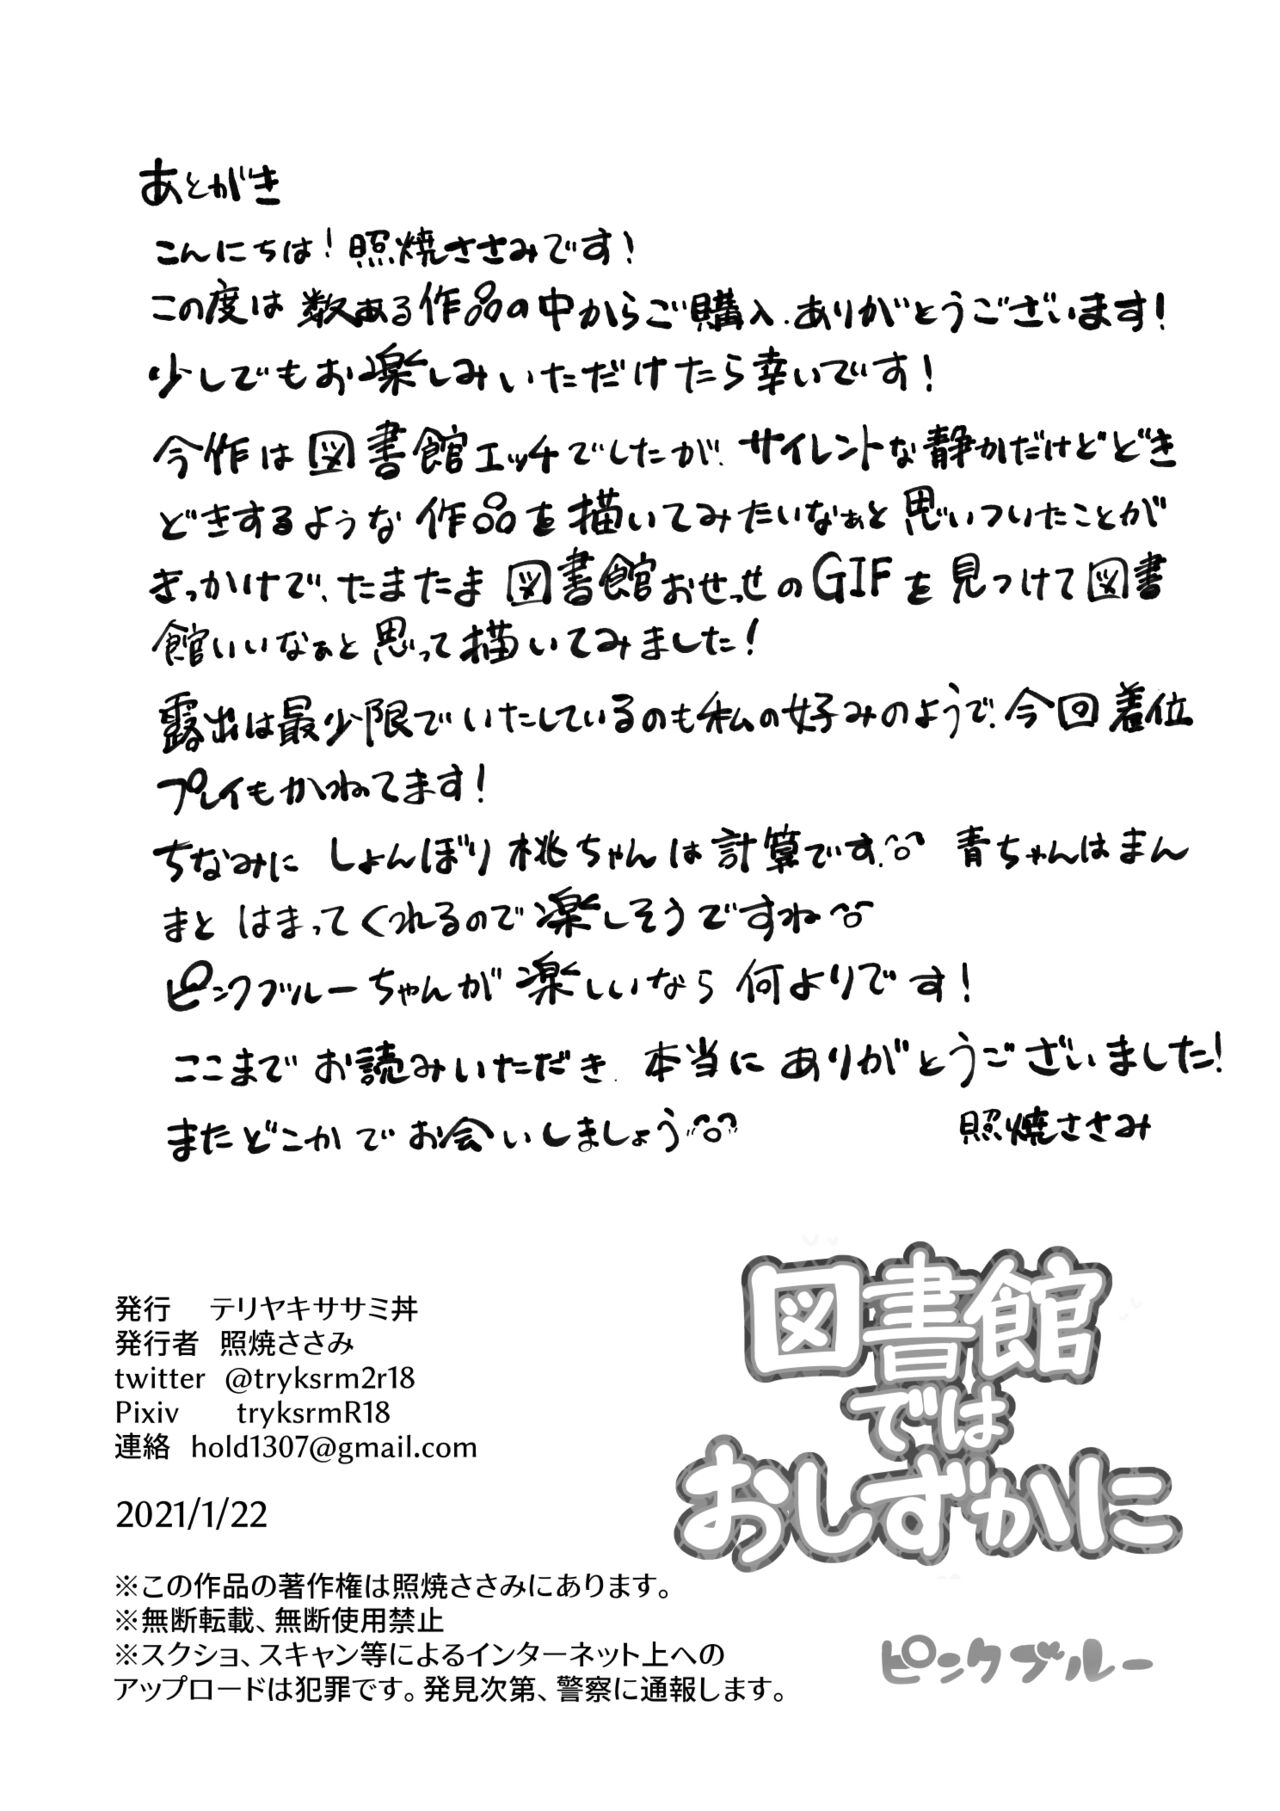 あとがき
こんにちは！照焼ささみです！
この度は数ある作品の中からご購入、ありがとうございます！
少しでもお楽しみいただけたら幸いです！
今作は図書館エッチでしたが、サイレントな静かだけどどき
どきするような作品を描いてみたいなぁと思いついたことが
きっかけで、たまたま図書館おせっせのGIFを見つけて図書
館いいなぁと思って描いてみました！
露出は最少限でいたしているのも私の好みのようで、今回着位
プレイもかねてます！
ちなみに しょんぼり桃ちゃんは計算です。 青ちゃんはまん
まと はまってくれるので楽しそうですね
ピンクブルーちゃんが楽しいなら何よりです！
ここまでお読みいただき、本当にありがとうございました！
またどこかでお会いしましょう
照焼ささみ
図書館
では
おしずかに
ピンクブルー
発行 テリヤキササミ丼
発行者 照焼ささみ
twitter @tryksrm2r18
Pixiv tryksrmR18
連絡 hold1307@gmail.com
2021/1/22
※この作品の著作権は照焼ささみにあります。
※無断転載、無断使用禁止
※スクショ、スキャン等によるインターネット上への
アップロードは犯罪です。発見次第、警察に通報します。